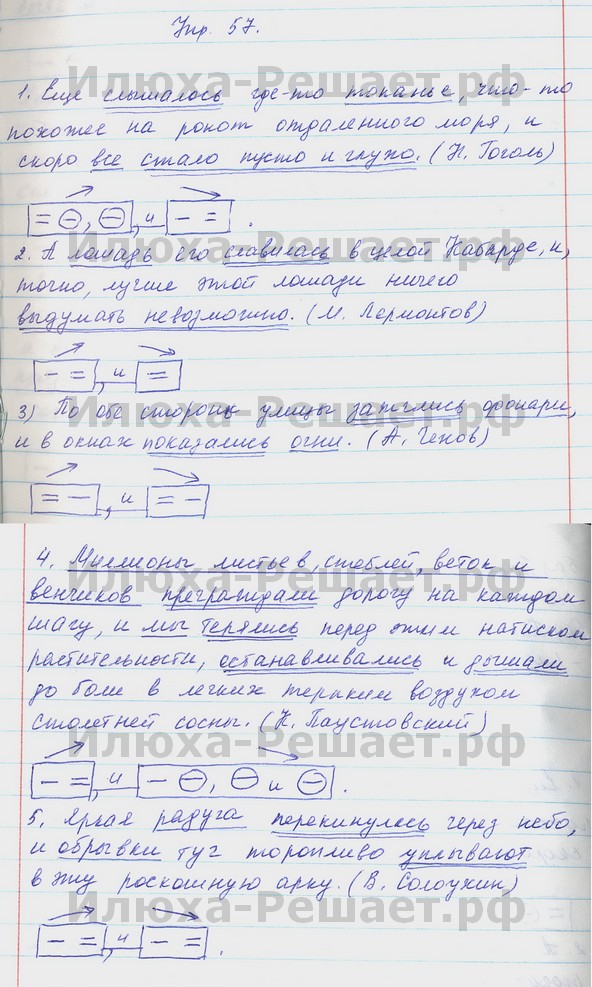 Упр. 57.
1. Еще слышалось где-то топанье, что-то
похожее на рокот отдаленного моря, и
скоро все стало пусто и глухо. (Н. Гоголь)
, и .
2. А лошадь его славилась в целой Кабарде, и,
точно, лучше этой лошади ничего
выдумать невозможно. (М. Лермонтов)
, и
3) По обе стороны улицы зажглись фонари,
и в окнах показались огни. (А. Чехов)
, и
4. Миллионы листьев, стеблей, веток и
венчиков преграждали дорогу на каждом
шагу, и мы терялись перед этим натиском
растительности, останавливались и дышали
до боли в легких терпким воздухом
столетней сосны. (К. Паустовский)
, и , и .
5. Яркая радуга перекинулась через небо,
и обрывки туч торопливо уплывают
в эту роскошную арку. (В. Солоухин)
, и .
Илюха-Решает.рф
Илюха-Решает.рф
Илюха-Решает.рф
Илюха-Решает.рф
Илюха-Решает.рф
Илюха-Решает.рф
Илюха-Решает.рф